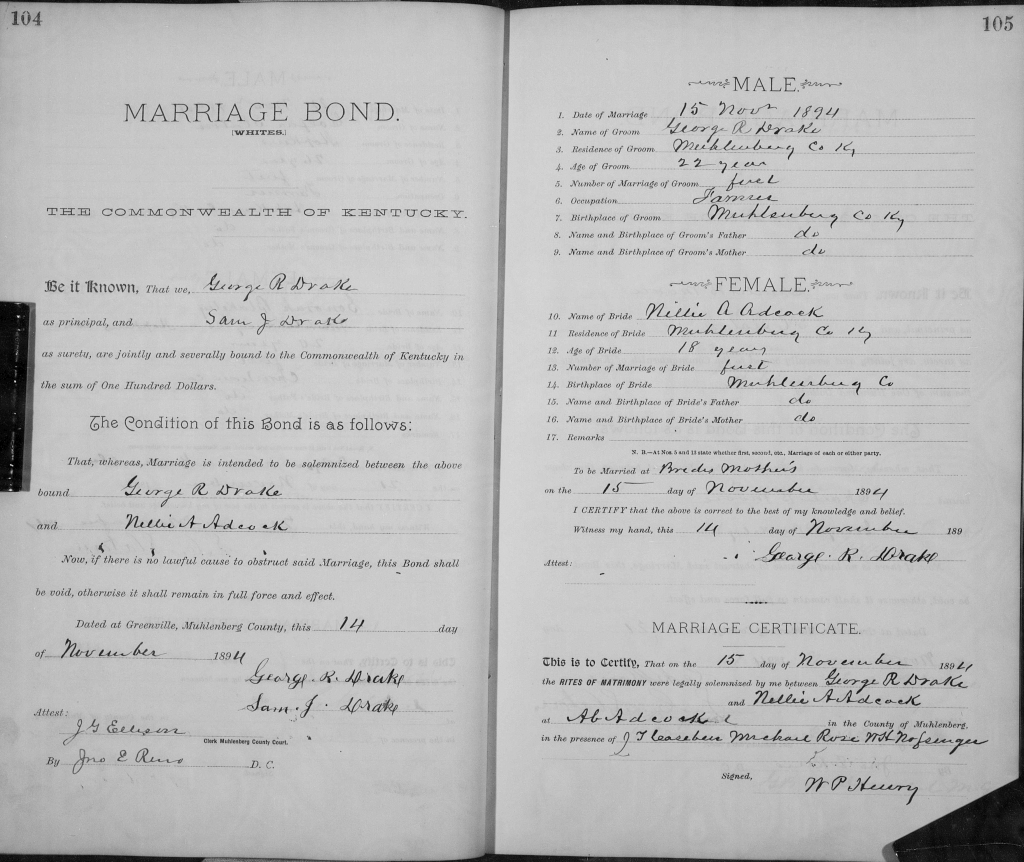 104
MARRIAGE BOND.
[WHITES.]
THE COMMONWEALTH OF KENTUCKY.
Be it Known, That we, George R Drake
as principal, and Sam J Drake
as surety, are jointly and severally bound to the Commonwealth of Kentucky in
the sum of One Hundred Dollars.
The Condition of this Bond is as follows:
That, whereas, Marriage is intended to be solemnized between the above
bound George R Drake
and Nellie A Adcock
Now, if there is no lawful cause to obstruct said Marriage, this Bond shall
be void, otherwise it shall remain in full force and effect.
Dated at Greenville, Muhlenberg County, this 14 day
of November 1894
George. R. Drake
Sam. J. Drake
Attest:
J G Ellison
Clerk Muhlenberg County Court.
By Jno E Reno D. C.
105
MALE.
1. Date of Marriage 15 Novr 1894
2. Name of Groom George R Drake
3. Residence of Groom Muhlenburg Co Ky
4. Age of Groom 22 year
5. Number of Marriage of Groom first
6. Occupation Farmer
7. Birthplace of Groom Muhlenburg Co Ky
8. Name and Birthplace of Groom's Father do
9. Name and Birthplace of Groom's Mother do
FEMALE.
10. Name of Bride Nillie A Adcock
11 Residence of Bride Muhlenburg Co Ky
12. Age of Bride 18 years
13. Number of Marriage of Bride first
14. Birthplace of Bride Muhlenburg Co
15. Name and Birthplace of Bride's Father do
16. Name and Birthplace of Bride's Mother do
17. Remarks
N. B.—At Nos 5 and 13 state whether first, second, etc., Marriage of each or either party.
To be Married at Brides Mother's
on the 15 day of November 1894
I CERTIFY that the above is correct to the best of my knowledge and belief.
Witness my hand, this 14 day of November 189
George. R. Drake
Attest:
MARRIAGE CERTIFICATE.
This is to Certify, That on the 15 day of November 1894
the RITES OF MATRIMONY were legally solemnized by me between George R Drake
and Nellie A Adcock
at Ab Adcock in the County of Muhlenberg,
in the presence of J T Michael Rose W H Nofsinger
Signed,
W P Henry